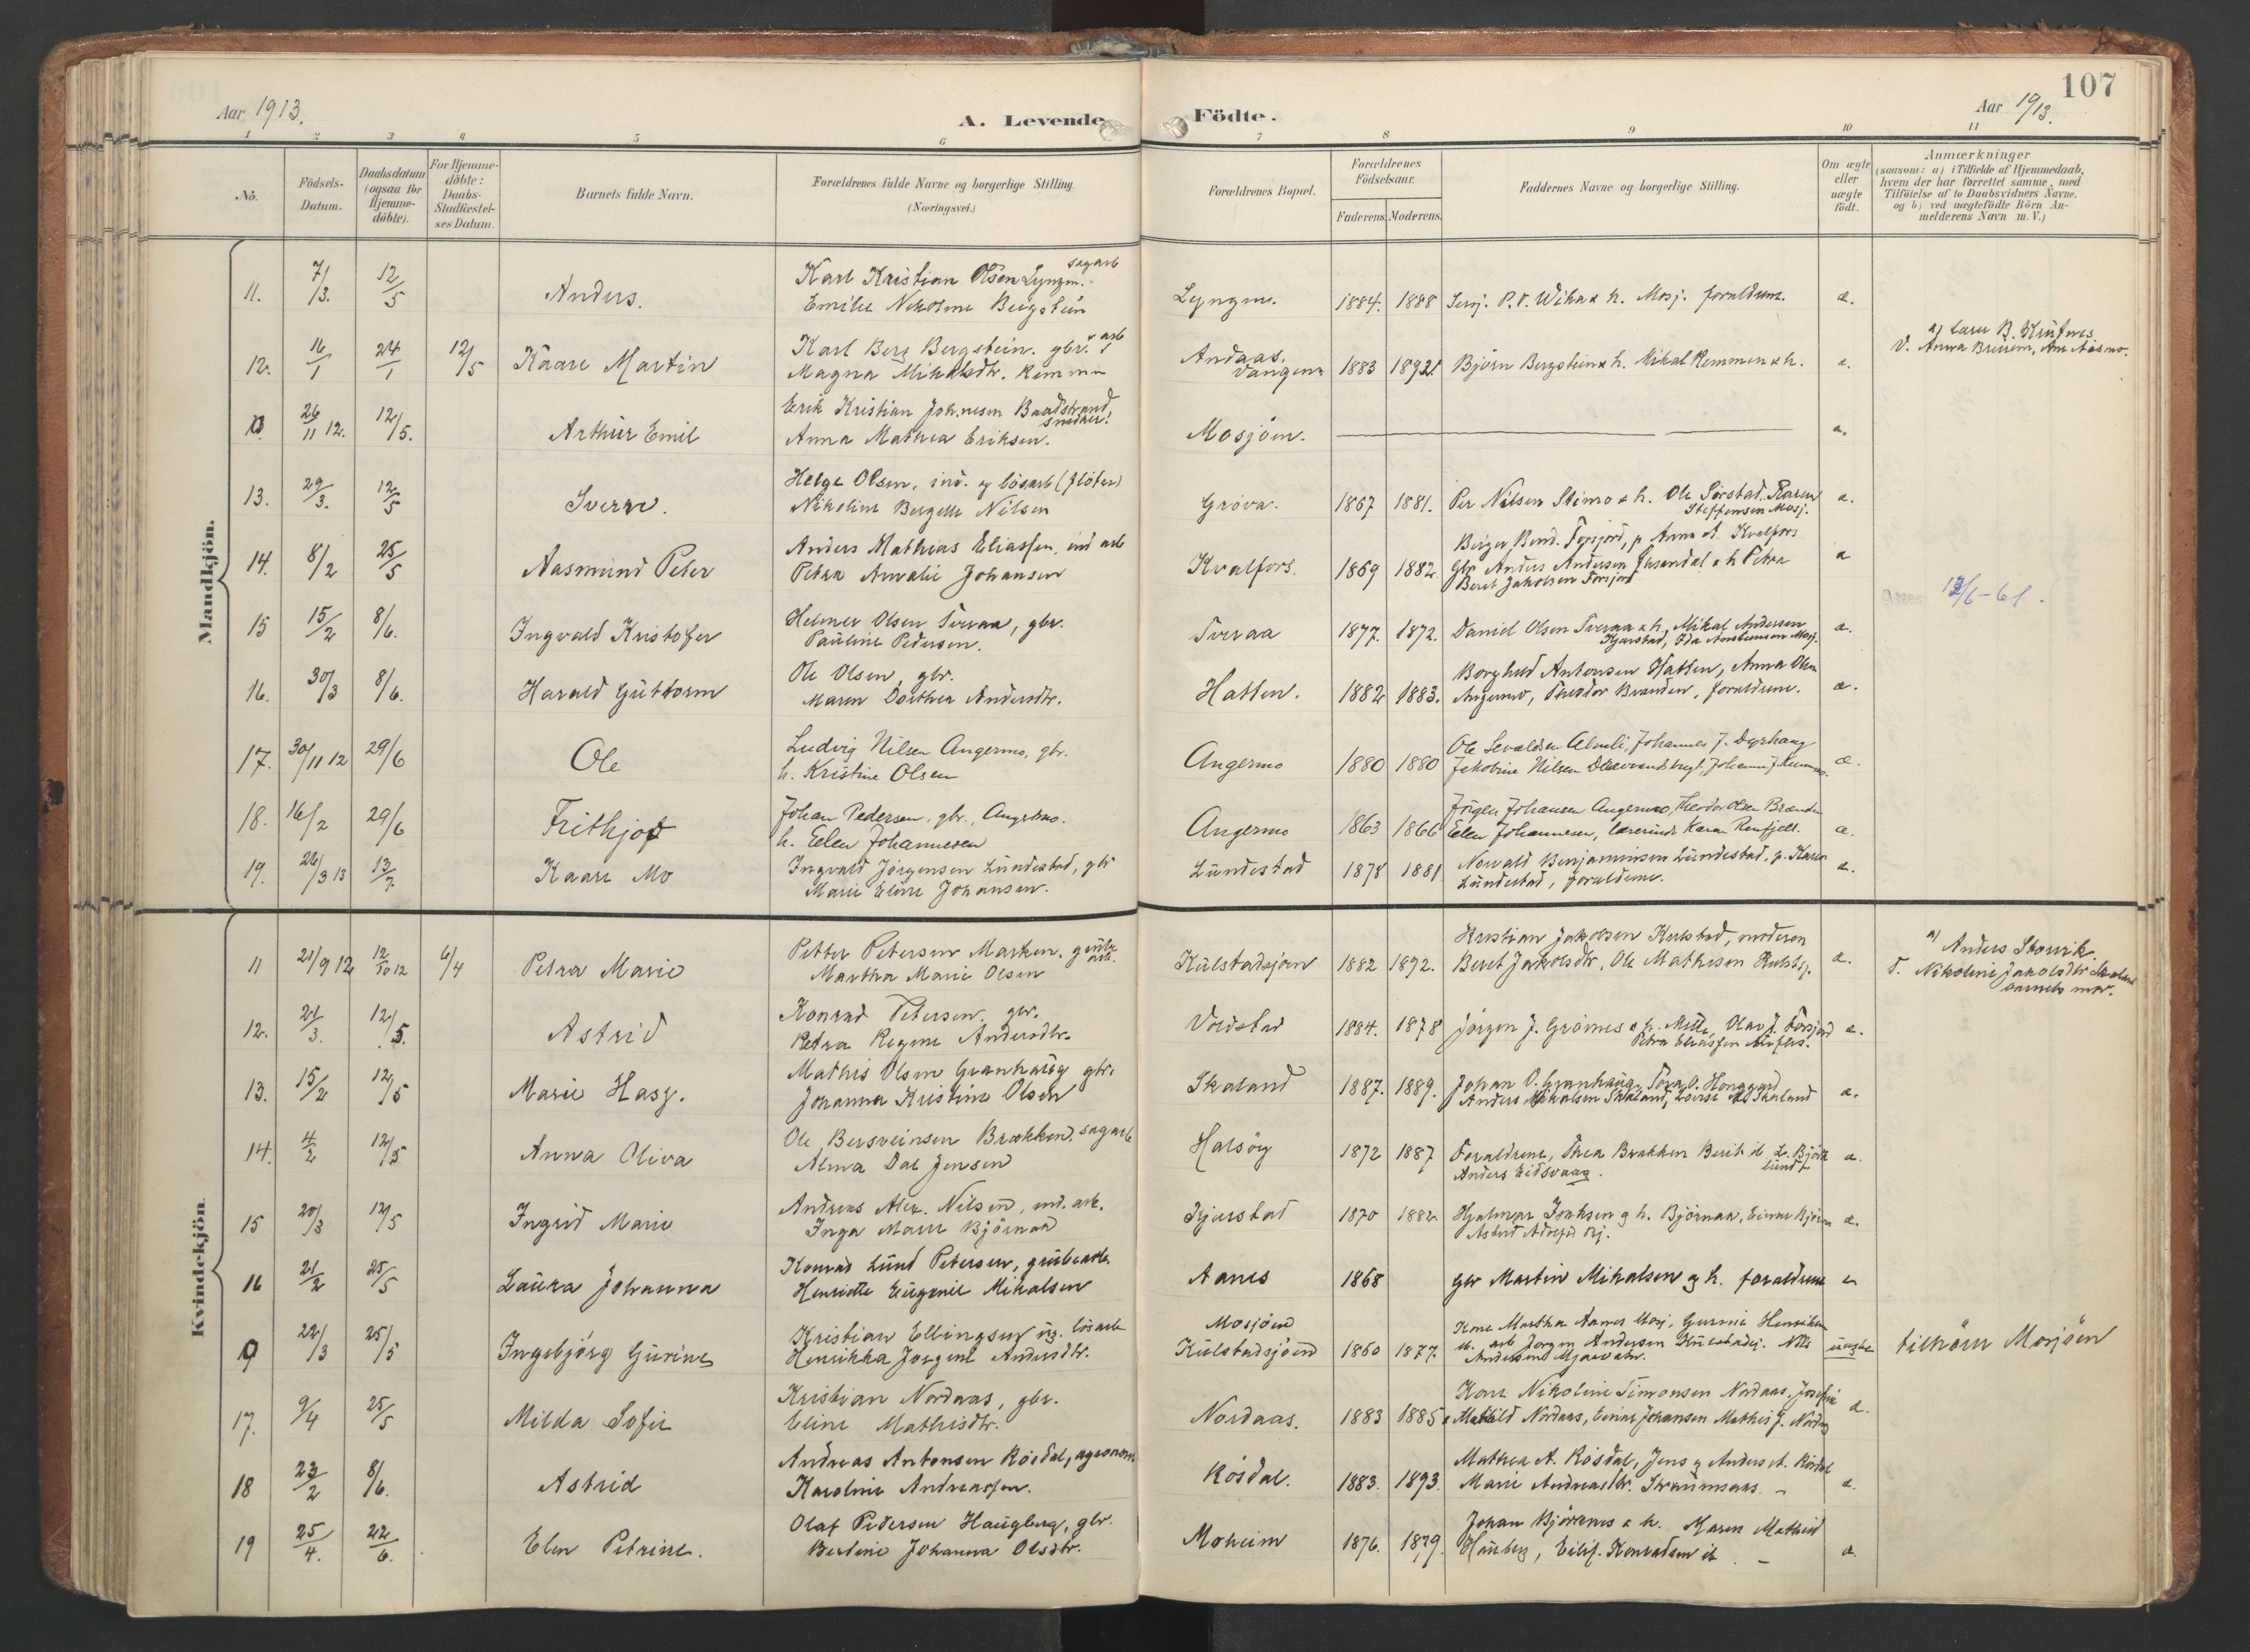 107
Aar 1913.
A. Levende Födte.
Aar 1913.
1 2 3 4 5 6 7 8 9 10 11
No.
Födsels-Datum.
Daabsdatum (ogsaa for Hjemme-döbte).
For Hjemme-döbte: Daabs-Stadfæstel-ses Datum.
Barnets fulde Navn.
Forældrenes fulde Navne og borgerlige Stilling.
(Næringsvei.)
Forældrenes Bopæl.
Forældrenes Födselsaar.
Faderens. Moderens.
Faddernes Navne og borgerlige Stilling.
Om ægte eller uægte födt.
Anmærkninger
(saasom: a) i Tilfælde af Hjemmedaab,
hvem der har forrettet samme, med
Tilföielse af to Daabsvidners Navne.
og b) ved uægtefödte Börn An-
melderens Navn m. V.)
Mandkjön.
11. 7/1 13. 12/5 Anders. Karl Kristian Olsen Lyngm. sagarb
Emilie Nikoline Bergstein
Lyngm. 1884. 1888 P. O. Wika & h. Mosj. foraldrene. æ.
12. 16/1 24/1 12/5 Kaare Martin Karl Berg Bergstein. gbr.s arb
Magna Mikalsdtr. Remmen
Andaas. Vangen 1883 1892. Björn Bergstein & h. Mikal Remmen & h. æ.
a) B. Kulfnes
V. Anna
0. 26/11 12. 12/5. Arthur Emil Erik Kristian Johnsen Baadstrand, snedker.
Anna Mathea Eriksen.
Mosjöen. æ.
13. 29/3. 12/5 Sverre. Helge Olsen, ind. og lösarb (flöter)
Nikoline Bergette Nilsen
Gröva. 1867 1881. Per Nilsen Stimo & h. Ole Sörstad. Karen
Steffensen Mosj. æ.
14. 8/2 25/5 Aasmund Peter Anders Mathias Eliassen, ind arb
Petra Amalie Johansen
Kvalfors. 1869 1882. Birger Bend. Forsjord, p. Anna A. Kvalfors
Gbr Anders Andersen & h Petra
Beret Jakobsen Forsjord æ
12/6-61.
15 15/2 8/6. Ingvald Kristofer Helmer Olsen Tveraa, gbr.
Pauline Pedersen.
Tveraa 1877. 1872. Daniel Olsen Tveraa & h, Mikal Andersen
Kjærstad, Ida Mosj. æ.
16. 30/3 8/6. Harald Guttorm Ole Olsen, gbr.
Maren Dorthea Andersdtr.
Hatten. 1882 1883. Borghild Antonsen Hatten, Anna Olsen
Angermo, Theodor Brænden, foraldrene. æ.
17. 30/11 12 29/6 Ole Ludvig Nilsen Angermo, gbr.
h. Kristine Olsen
Angermo 1880 1880 Ole Sevaldsen Almli, Johannes J. Dyrhaug
Jakobine Nilsen æ.
18. 16/2 29/6 Frithjof Johan Pedersen, gbr., Angermo.
h. Elen Johannesen
Angermo 1863 1866 Jörgen Johansen Angermo, Theodor Olsen Brænden
Elen Johannesen, lærerinde Karen Renfjell. æ.
19. 26/3 13 13/7 Kaare Mo Ingvald Jörgensen Lundestad, gbr
Marie Eline Johansen.
Lundestad 1878 1881 Norvald Benjaminsen Lundestad, p. Karen
Lundestad, foraldrene. æ.
Kvindekjön
11 21/9 12 12/10 12 6/4 Petra Marie Petter Petersen Marken, grube arb.
Martha Marie Olsen
Kulstadsjøen 1882 1872. Kristian Jakobsen Kulstad, moderen
Beret Jakobsdtr, Ole Mathisen Kulstsj. æ.
a) Anders Storvik
V. Nikoline Jakobsdtr
barnets mor.
12. 21/3. 12/5. Astrid Konrad Petersen, gbr.
Petra Regine Andersdtr.
Voldstad 1884. 1878 Jörgen J. Grönnes & h. Mette, Olav J. Forsjord
Petra Eliassen æ.
13. 15/2 12/5 Marie Hasy. Mathis Olsen Granhaug gbr.
Johanna Kristine Olsen
Skaland 1887. 1889. Johan O. Granhaug, Tora O.
Anders Mikalsen Skaland, Lovise M Skaland æ.
14. 4/2 12/5 Anna Oliva Ole Bersveinsen Brækken. sagarb
Alma Dal Jensen
Halsöy 1872 1887 Foraldrene, Thea Brækken Berit L. Björklund
Anders Eidsvaag. æ.
15 20/3 12/5 Ingrid Marie Andreas Alex. Nilsen, ind. arb.
Inga Marie Björnaa
Kjærstad 1870 1882. Hjalmar Isaksen og h. Björnaa, Einar
Astrid Adolfsd Bj. æ.
16 21/2 25/5 Laura Johanna Konrad Lund Petersen, grubearb.
Henriette Eugenie Mikalsen
Aanes 1868 gbr Martin Mikalsen og h. foraldrene æ
0 22/3 25/5 Ingebjörg Gurine Kristian Ellingsen lösarb
Henrikka Jörgine Andersdtr.
Mosjöen
Kulstadsjöen 1860 1877. Kone Martha Aanes Mosj. Henriksen
arb Jörgen Andersen Kulstadsj. Nils
Andersen uægte
tilhörer Mosjöen
17. 9/4 25/5 Milda Sofie Kristian Nordaas, gbr.
Eline Mathisdtr.
Nordaas. 1883 1885 Kone Nikoline Simonsen Nordaas, Josefine
Mathild Nordaas, Einar Johansen Mathis J. Nordaas æ.
18 23/2 8/6. Astrid Andreas Antonsen Rösdal, agronom
Karoline Andreassen.
Rösdal. 1883. 1893. Mathea A. Rösdal, Jens og Anders A. Rösdal
Marie Andreasdtr. Straumsaas. æ.
19 25/4. 22/6. Elen Petrine. Olaf Pedersen Haugberg, gbr.
Bertine Johanna Olsdtr.
Moheim 1876. 1879. Johan Björknes & h. Maren Mathisd
Hauberg, Eilif. Konradsen æ.